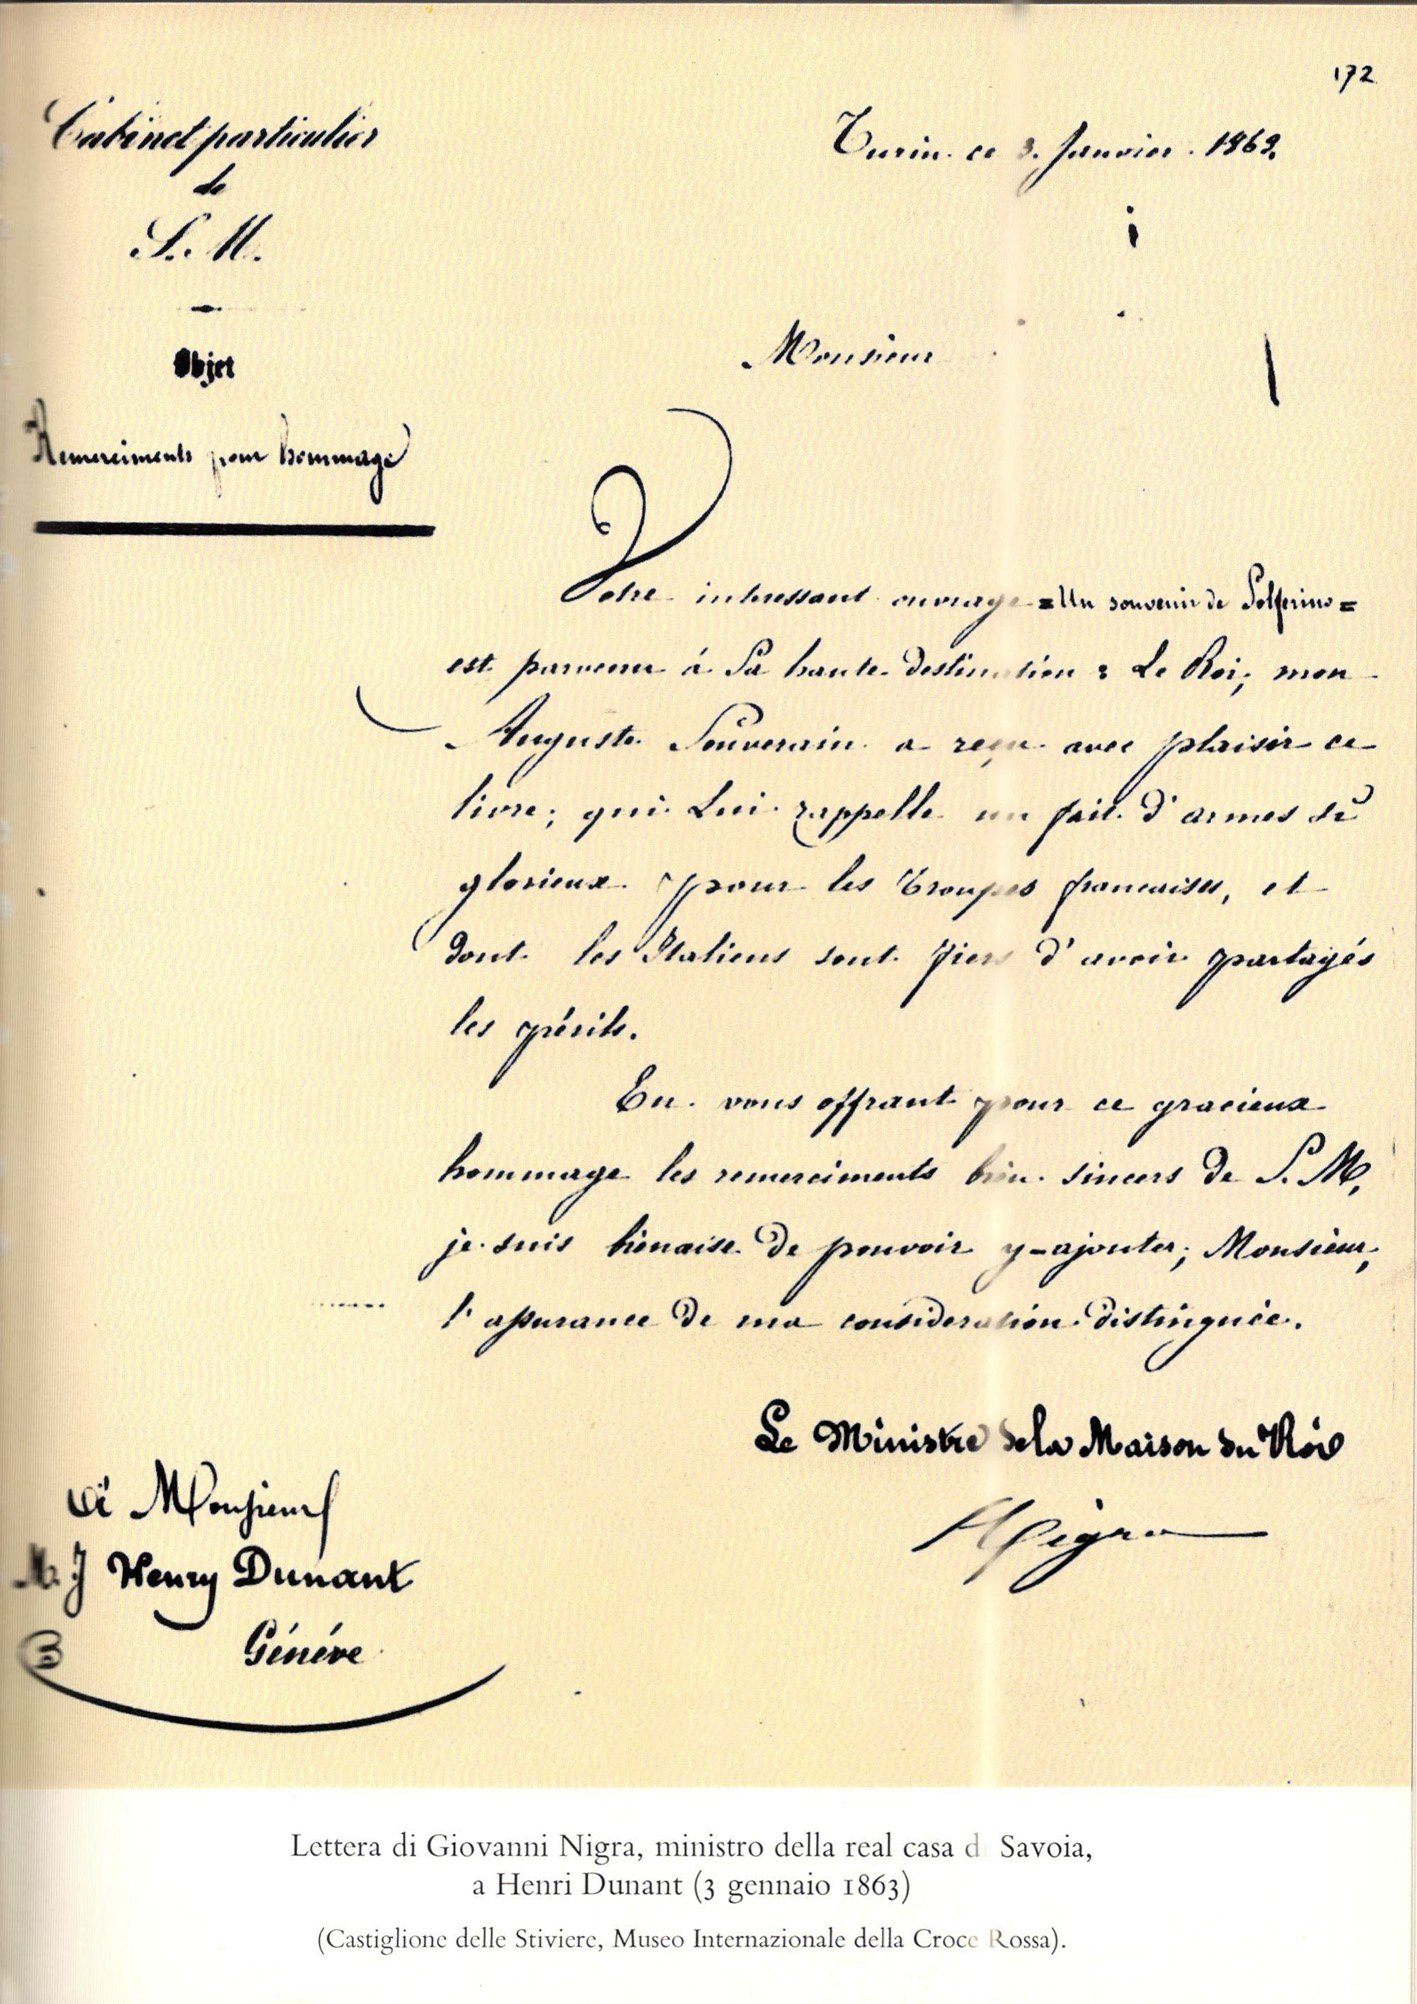 172
Cabinet particulier
de
S. M.
Objet
Remerciments pour hommage
Turin ce 3. Janvier 1863.
Monsieur
Votre intéressant ouvrage = Un souvenir de Solferino =
est parvenu à Sa haute destination : Le Roi, mon
Auguste Souverain a reçu avec plaisir ce
livre, qui Lui rappelle un fait d'armes si
glorieux pour les Troupes françaises, et
dont les Italiens sont fiers d'avoir partagés
les périls.
En vous offrant pour ce gracieux
hommage les remerciments bien sincers de S. M,
je suis bienaise de pouvoir y-ajouter, Monsieur,
l'assurance de ma considération distinguée.
Le Ministre de la Maison du Roi
Nigra
à Monsieur
J Henry Dunant
Généve
Lettera di Giovanni Nigra, ministro della real casa di Savoia,
a Henri Dunant (3 gennaio 1863)
(Castiglione delle Stiviere, Museo Internazionale della Croce Rossa).